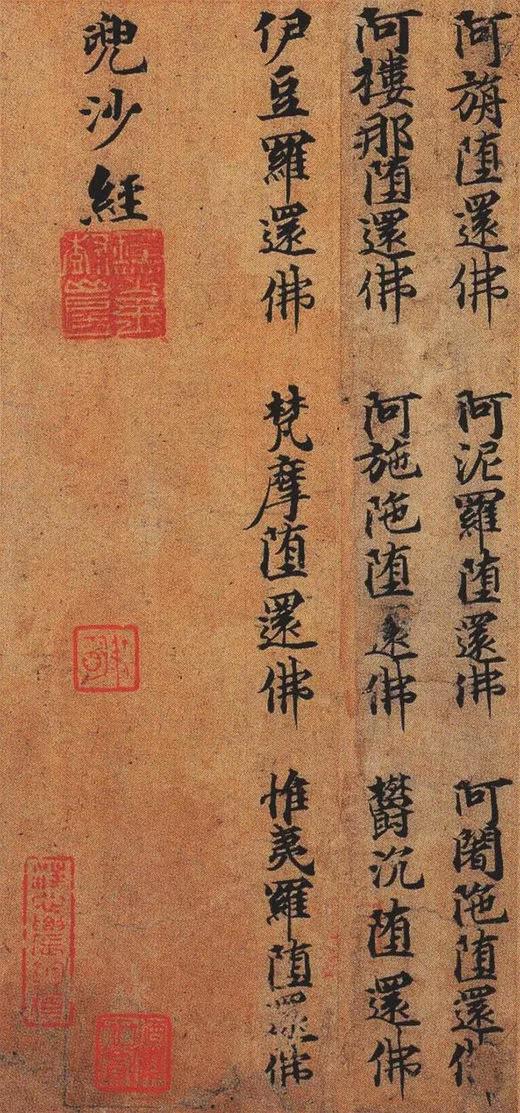 阿旃堕還佛 阿泥羅堕還佛 阿闍陁堕還
阿樓那堕還佛 阿施陁堕還佛 欝沉堕還佛
伊豆羅還佛 梵摩堕還佛 惟夷羅堕還佛
兜沙經